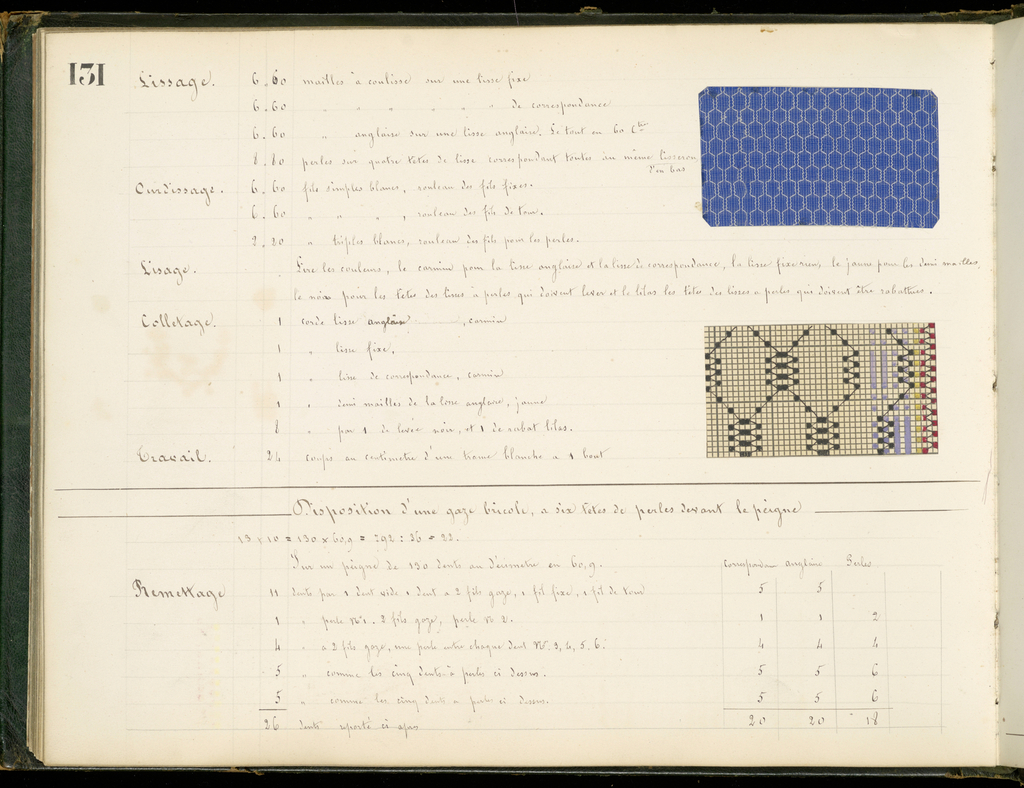 131
Lissage. 6.60 mailles à coulisse sur une lisse fixe
6.60 " " " " " " de correspondance
6.60 " anglaise sur une lisse anglaise. Le tout en 60 Cte
8.80 perles sur quatre têtes de lisse correspondant toutes au même lisseron
d'en bas
Ourdissage. 6.60 fils simples blancs, rouleau des fils fixes.
6.60 " " " , rouleau des fils de tour.
2.20 " triples blancs, rouleau des fils pour les perles.
Lisage. Lire les couleurs, le carmin pour la lisse anglaise et la lisse de correspondance, la lisse fixe rien, le jaune pour les demi mailles,
le noir pour les têtes des lisses à perles qui doivent lever et le lilas les têtes des lisses a perles qui doivent être rabattues.
Colletage. 1 corde lisse anglaise , carmin
1 " lisse fixe.
1 " lisse de correspondance, carmin
1 " demi mailles de la lisse anglaise, jaune
8 " par 1 de levée noir, et 1 de rabat lilas.
Travail. 24 coups au centimetre d'une trame blanche a 1 bout
Disposition d'une gaze bricole, a six têtes de perles devant le peigne
13 x 10 = 130 x 60,9 = 792 : 36 = 22.
Sur un peigne de 130 dents au décimetre en 60,9. correspondan anglaise Perles
Remettage 11 dents par 1 dent vide 1 dent a 2 fils gaze, 1 fil fixe, 1 fil de tour 5 5
1 " perle No 1. 2 fils gaze, perle No 2. 1 1 2
4 " a 2 fils gaze, une perle entre chaque dent No 3, 4, 5, 6. 4 4 4
5 " comme les cinq dents à perles ci dessus. 5 5 6
5 " comme les cinq dents a perles ci dessus. 5 5 6
26 dents reporté ci apres 20 20 18